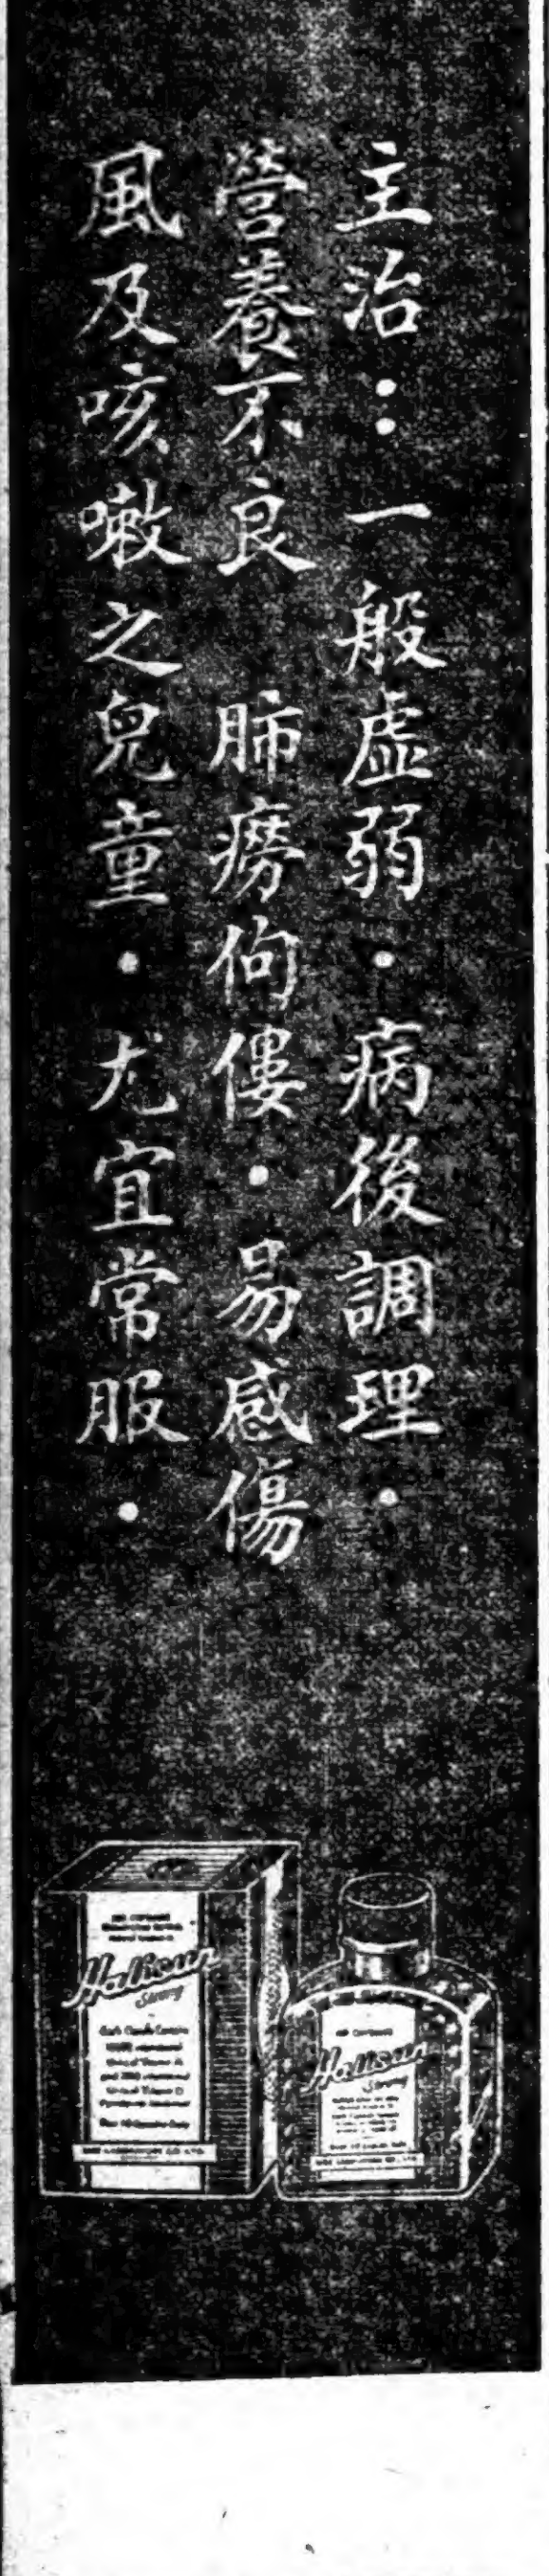 主治：一般虛弱・病後調理・
營養不良　肺癆佝僂・易感傷
風及咳嗽之兒童・尤宜常服・
Haliwan
Strong
Haliwan
Strong